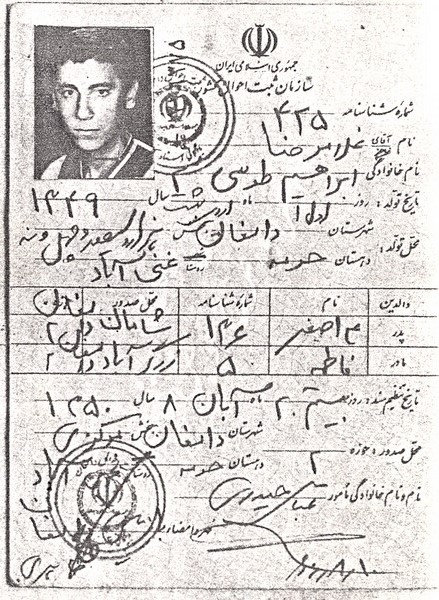 جمهوری اسلامی ایران
سازمان ثبت احوال کشور
شماره شناسنامه ۴۲۵
نام آقای غلامرضا
نام خانوادگی ابراهیم طوسی
تاریخ تولد : روز اول ماه اردیبهشت سال ۱۳۴۹
محل تولد : شهرستان دامغان بخش
دهستان حومه روستا غنی آباد
والدین نام شماره شناسنامه محل صدور
پدر م اصغر ۱۳۶ دامغان
مادر فاطمه ۵
تاریخ تنظیم سند : روز بیستم ۲۰ ماه آبان ۸ سال ۱۳۵۰
محل صدور : حوزه ۲ شهرستان دامغان بخش مرکزی
دهستان حومه
نام و نام خانوادگی مأمور عباس حیدری
مهر و امضاء